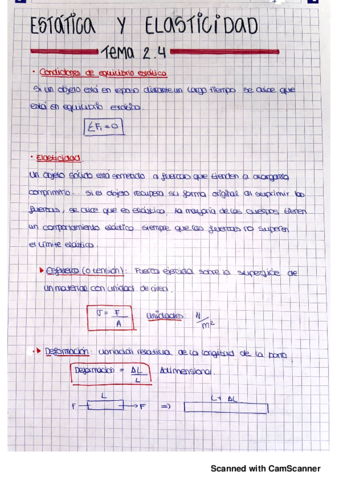 ESTÁTICA Y ELASTICIDAD
TEMA 2.4
· Condiciones de equilibrio estático
Si un objeto está en reposo durante un largo tiempo se dice que
está en equilibrio estático.
ΣFi = 0
· Elasticidad
Un objeto sólido está sometido a fuerzas que tienden a alargarlo
comprimirlo. Si el objeto recupera su forma original al suprimir las
fuerzas, se dice que es elástico. La mayoría de los cuerpos tienen
un comportamiento elástico siempre que las fuerzas no superen
el límite elástico.
▸ Esfuerzo (o tensión): Fuerza ejercida sobre la superficie de
un material por unidad de área.
σ = F/A Unidades N/m²
· ▸ Deformación: variación relativa de la longitud de la barra.
Deformación = ΔL/L Adimensional.
L L + ΔL
F ← → F ⇒
Scanned with CamScanner